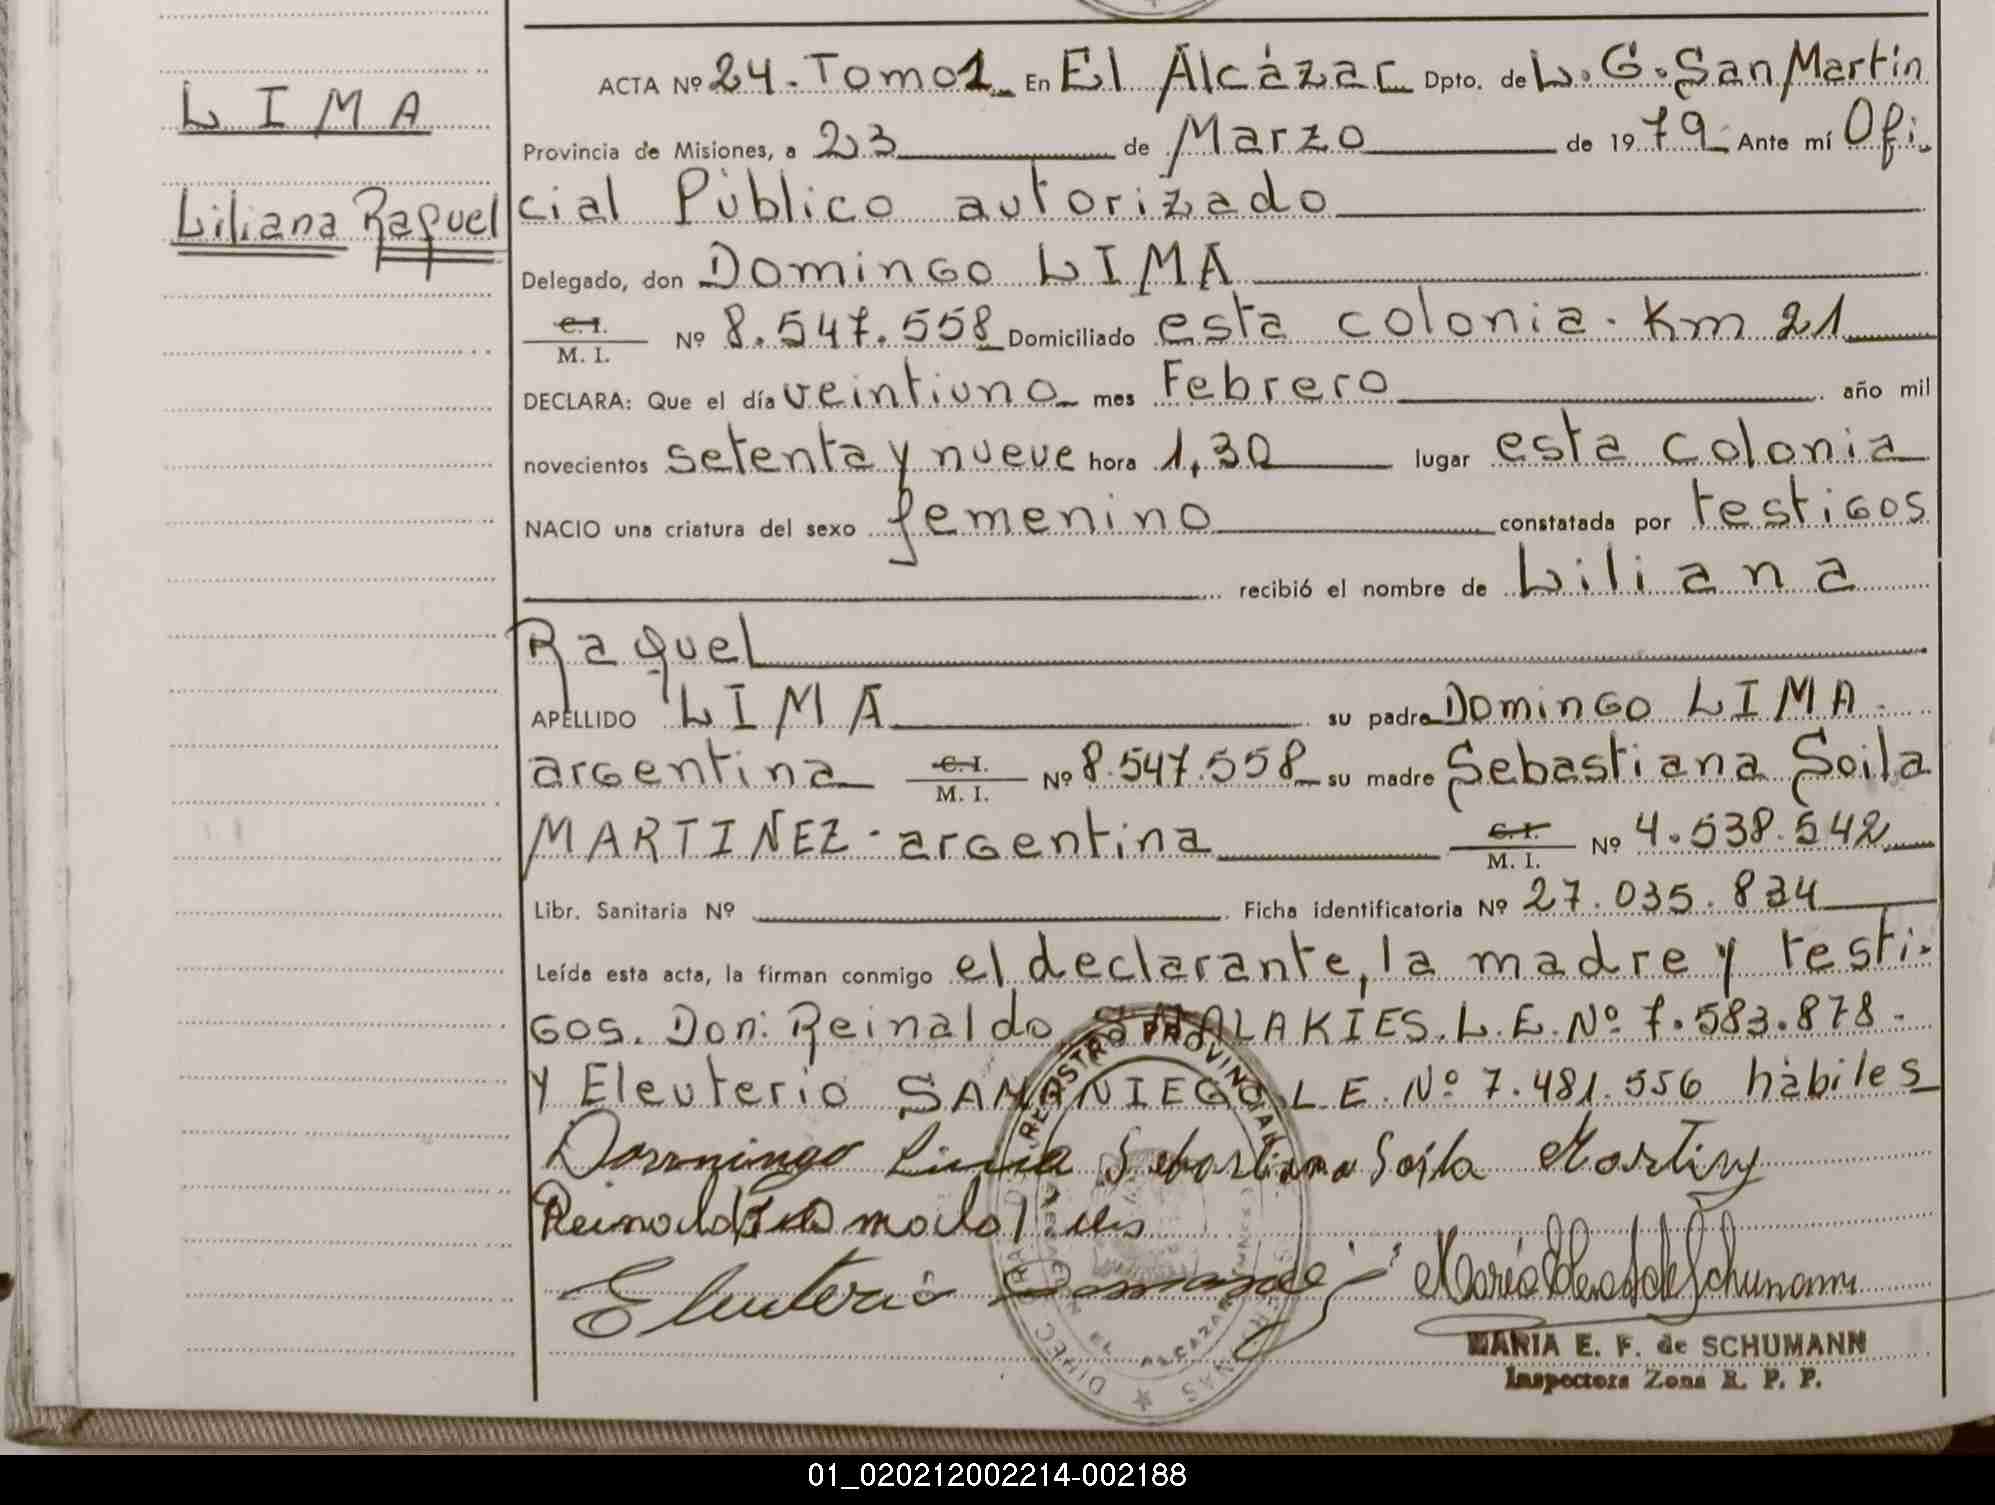 LIMA
Liliana Raquel
ACTA Nº 24. Tomo 1 En El Alcázar Dpto. de L. G. San Martín
Provincia de Misiones, a 23 de Marzo de 1979 Ante mí Ofi-
cial Público autorizado
Delegado, don Domingo LIMA
C. I.
M. I. Nº 8.547.558 Domiciliado esta colonia. Km 21
DECLARA: Que el día veintiuno mes Febrero año mil
novecientos setenta y nueve hora 1,30 lugar esta colonia
NACIO una criatura del sexo femenino constatada por testigos
recibió el nombre de Liliana
Raquel
APELLIDO LIMA su padre Domingo LIMA.
argentina C. I. M. I. Nº 8.547.558 su madre Sebastiana Soila
MARTINEZ - argentina C. I. M. I. Nº 4.538.542
Libr. Sanitaria Nº Ficha identificatoria Nº 27.035.834
Leída esta acta, la firman conmigo el declarante, la madre y testi-
gos. Don: Reinaldo SMALAKIES. L.E. Nº 7.583.878.
y Eleuterio SAMANIEGO L.E. Nº 7.481.556 hábiles
Domingo Lima Sebastiana Soila Martinez
Reinaldo
Eleuterio
REGISTRO PROVINCIAL
EL ALCAZAR
MARIA E. F. de SCHUMANN
Inspectora Zona R. P. P.
01_020212002214-002188